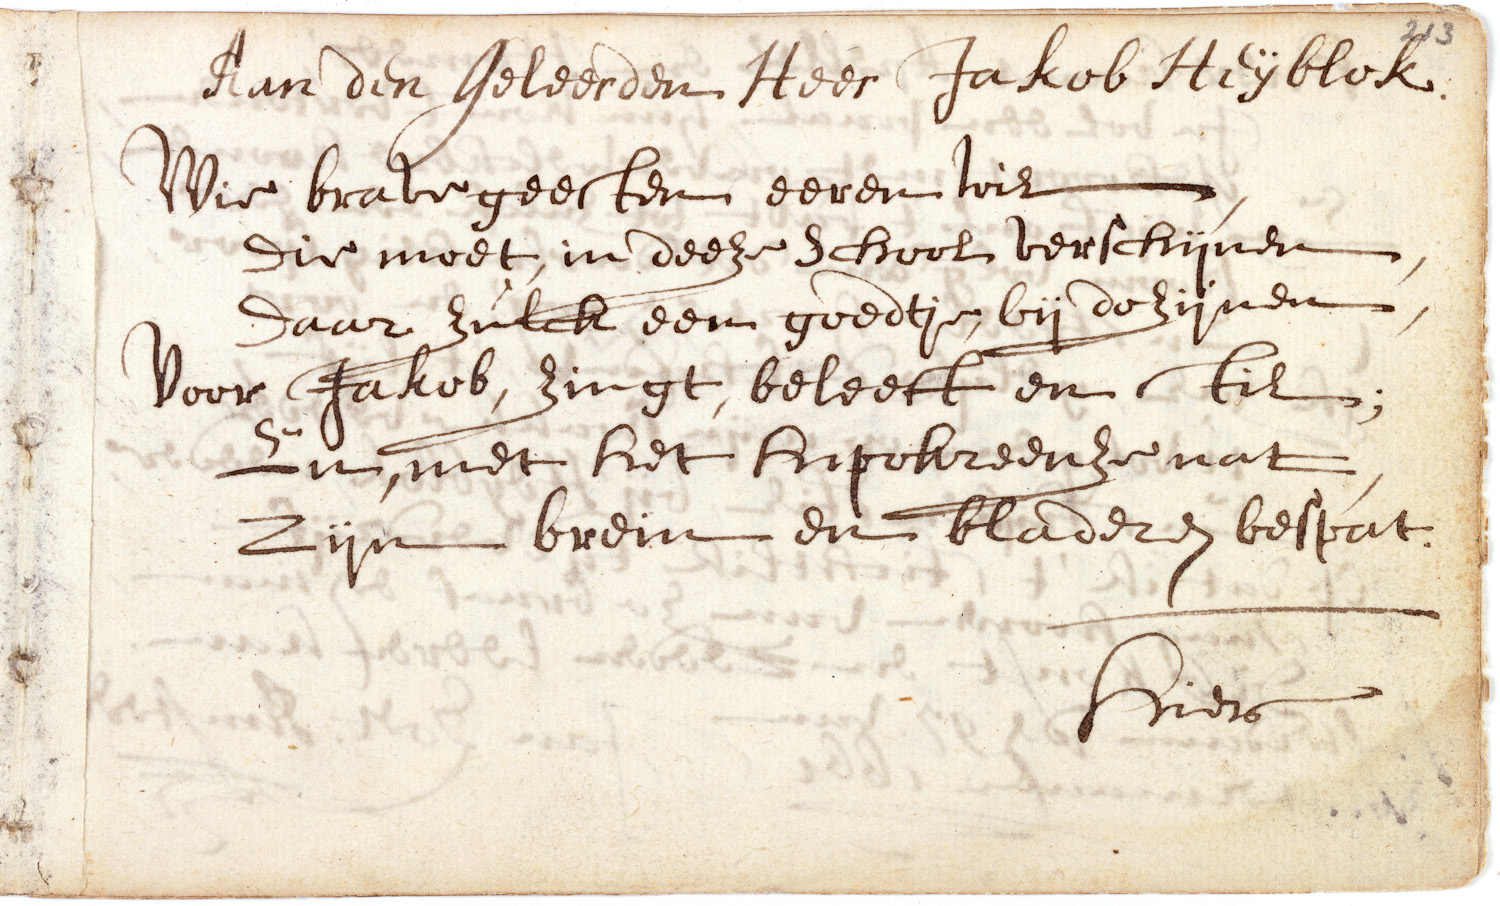 213
Aan den Geleerden Heer Jakob Heyblok.
Wie brave geesten eeren wil,
die moet, in deeze School verschijnen,
daar zulck een goedtje, bij dozijnen,
Voor Jakob, zingt, beleeft en stil;
En, met het hypokreenze nat,
Zijn brein en bladeren bespat.